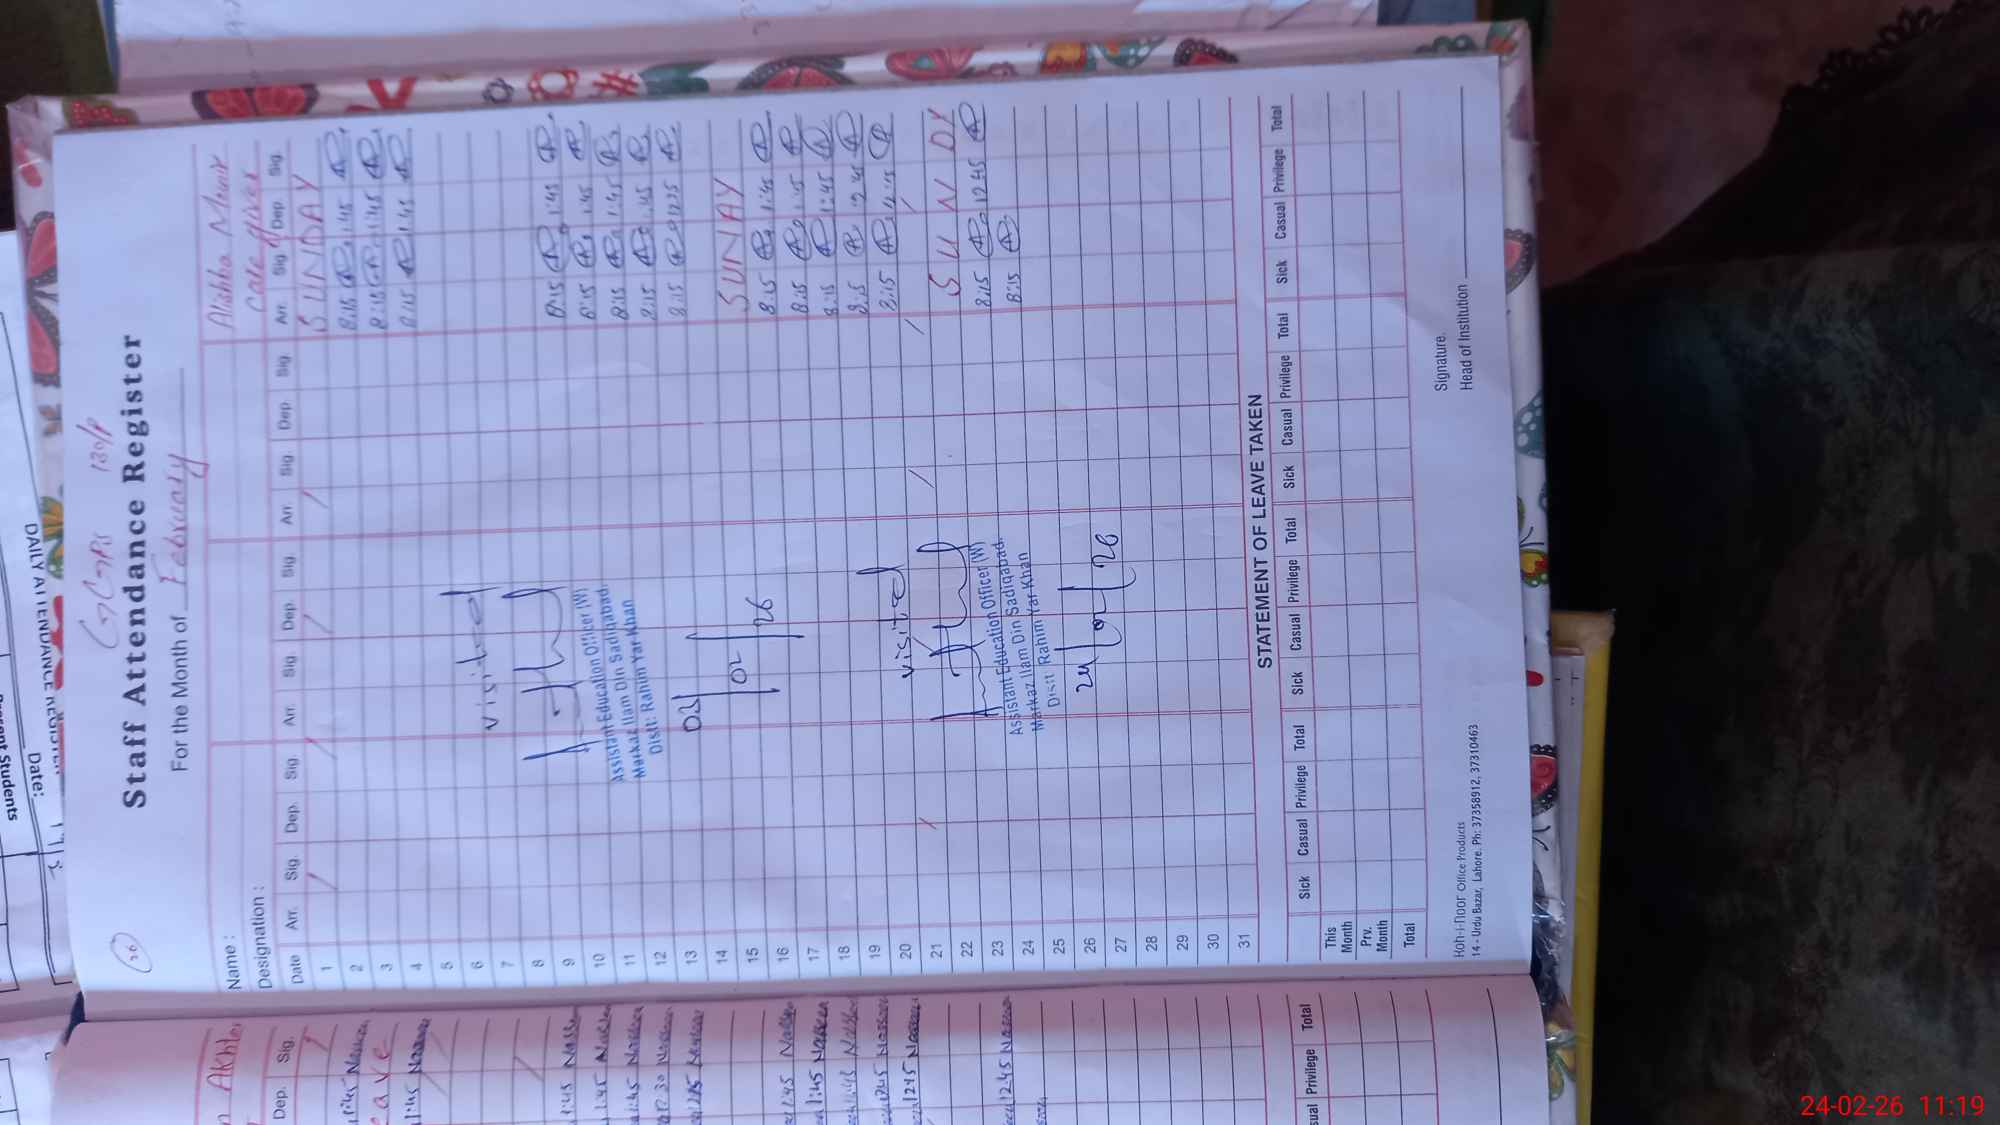 DAILY ATTENDANCE REGISTER
Date:
Present Students
26
GGPS 130/P
Staff Attendance Register
For the Month of February
Name :
Alishba Munir
Designation :
Care giver
Date Arr. Sig. Dep. Sig. Arr. Sig. Dep. Sig. Arr. Sig. Dep. Sig. Arr. Sig. Dep. Sig.
1 SUNDAY
2 8:15 1:45
3 8:15 1:45
4 8:15 1:45
5
6
7
8
9 8:15 1:45
10 8:15 1:45
11 8:15 1:45
12 8:15 1:45
13 8:15
14
15 SUNAY
16 8:15 1:45
17 8:15 1:45
18 8:15 1:45
19 8:15
20 8:15
21
22 SUNDY
23 8:15 1245
24 8:15
25
26
27
28
29
30
31
visited
Assistant Education Officer (W)
Markaz Ilam Din Sadiqabad.
Distt: Rahim Yar Khan
03/02/26
visited
Assistant Education Officer (W)
Markaz Ilam Din Sadiqabad.
Distt: Rahim Yar Khan
24/02/26
STATEMENT OF LEAVE TAKEN
Sick Casual Privilege Total Sick Casual Privilege Total Sick Casual Privilege Total Sick Casual Privilege Total
This
Month
Prv.
Month
Total
Signature.
Head of Institution
Koh-i-noor Office Products
14 - Urdu Bazar, Lahore. Ph: 37358912, 37310463
Akhter
Dep. Sig.
1:45
eave
1:45
1:45
1:45
1:45
12:30
1:45
1:45
1245
1245
1245
Privilege Total
24-02-26 11:19